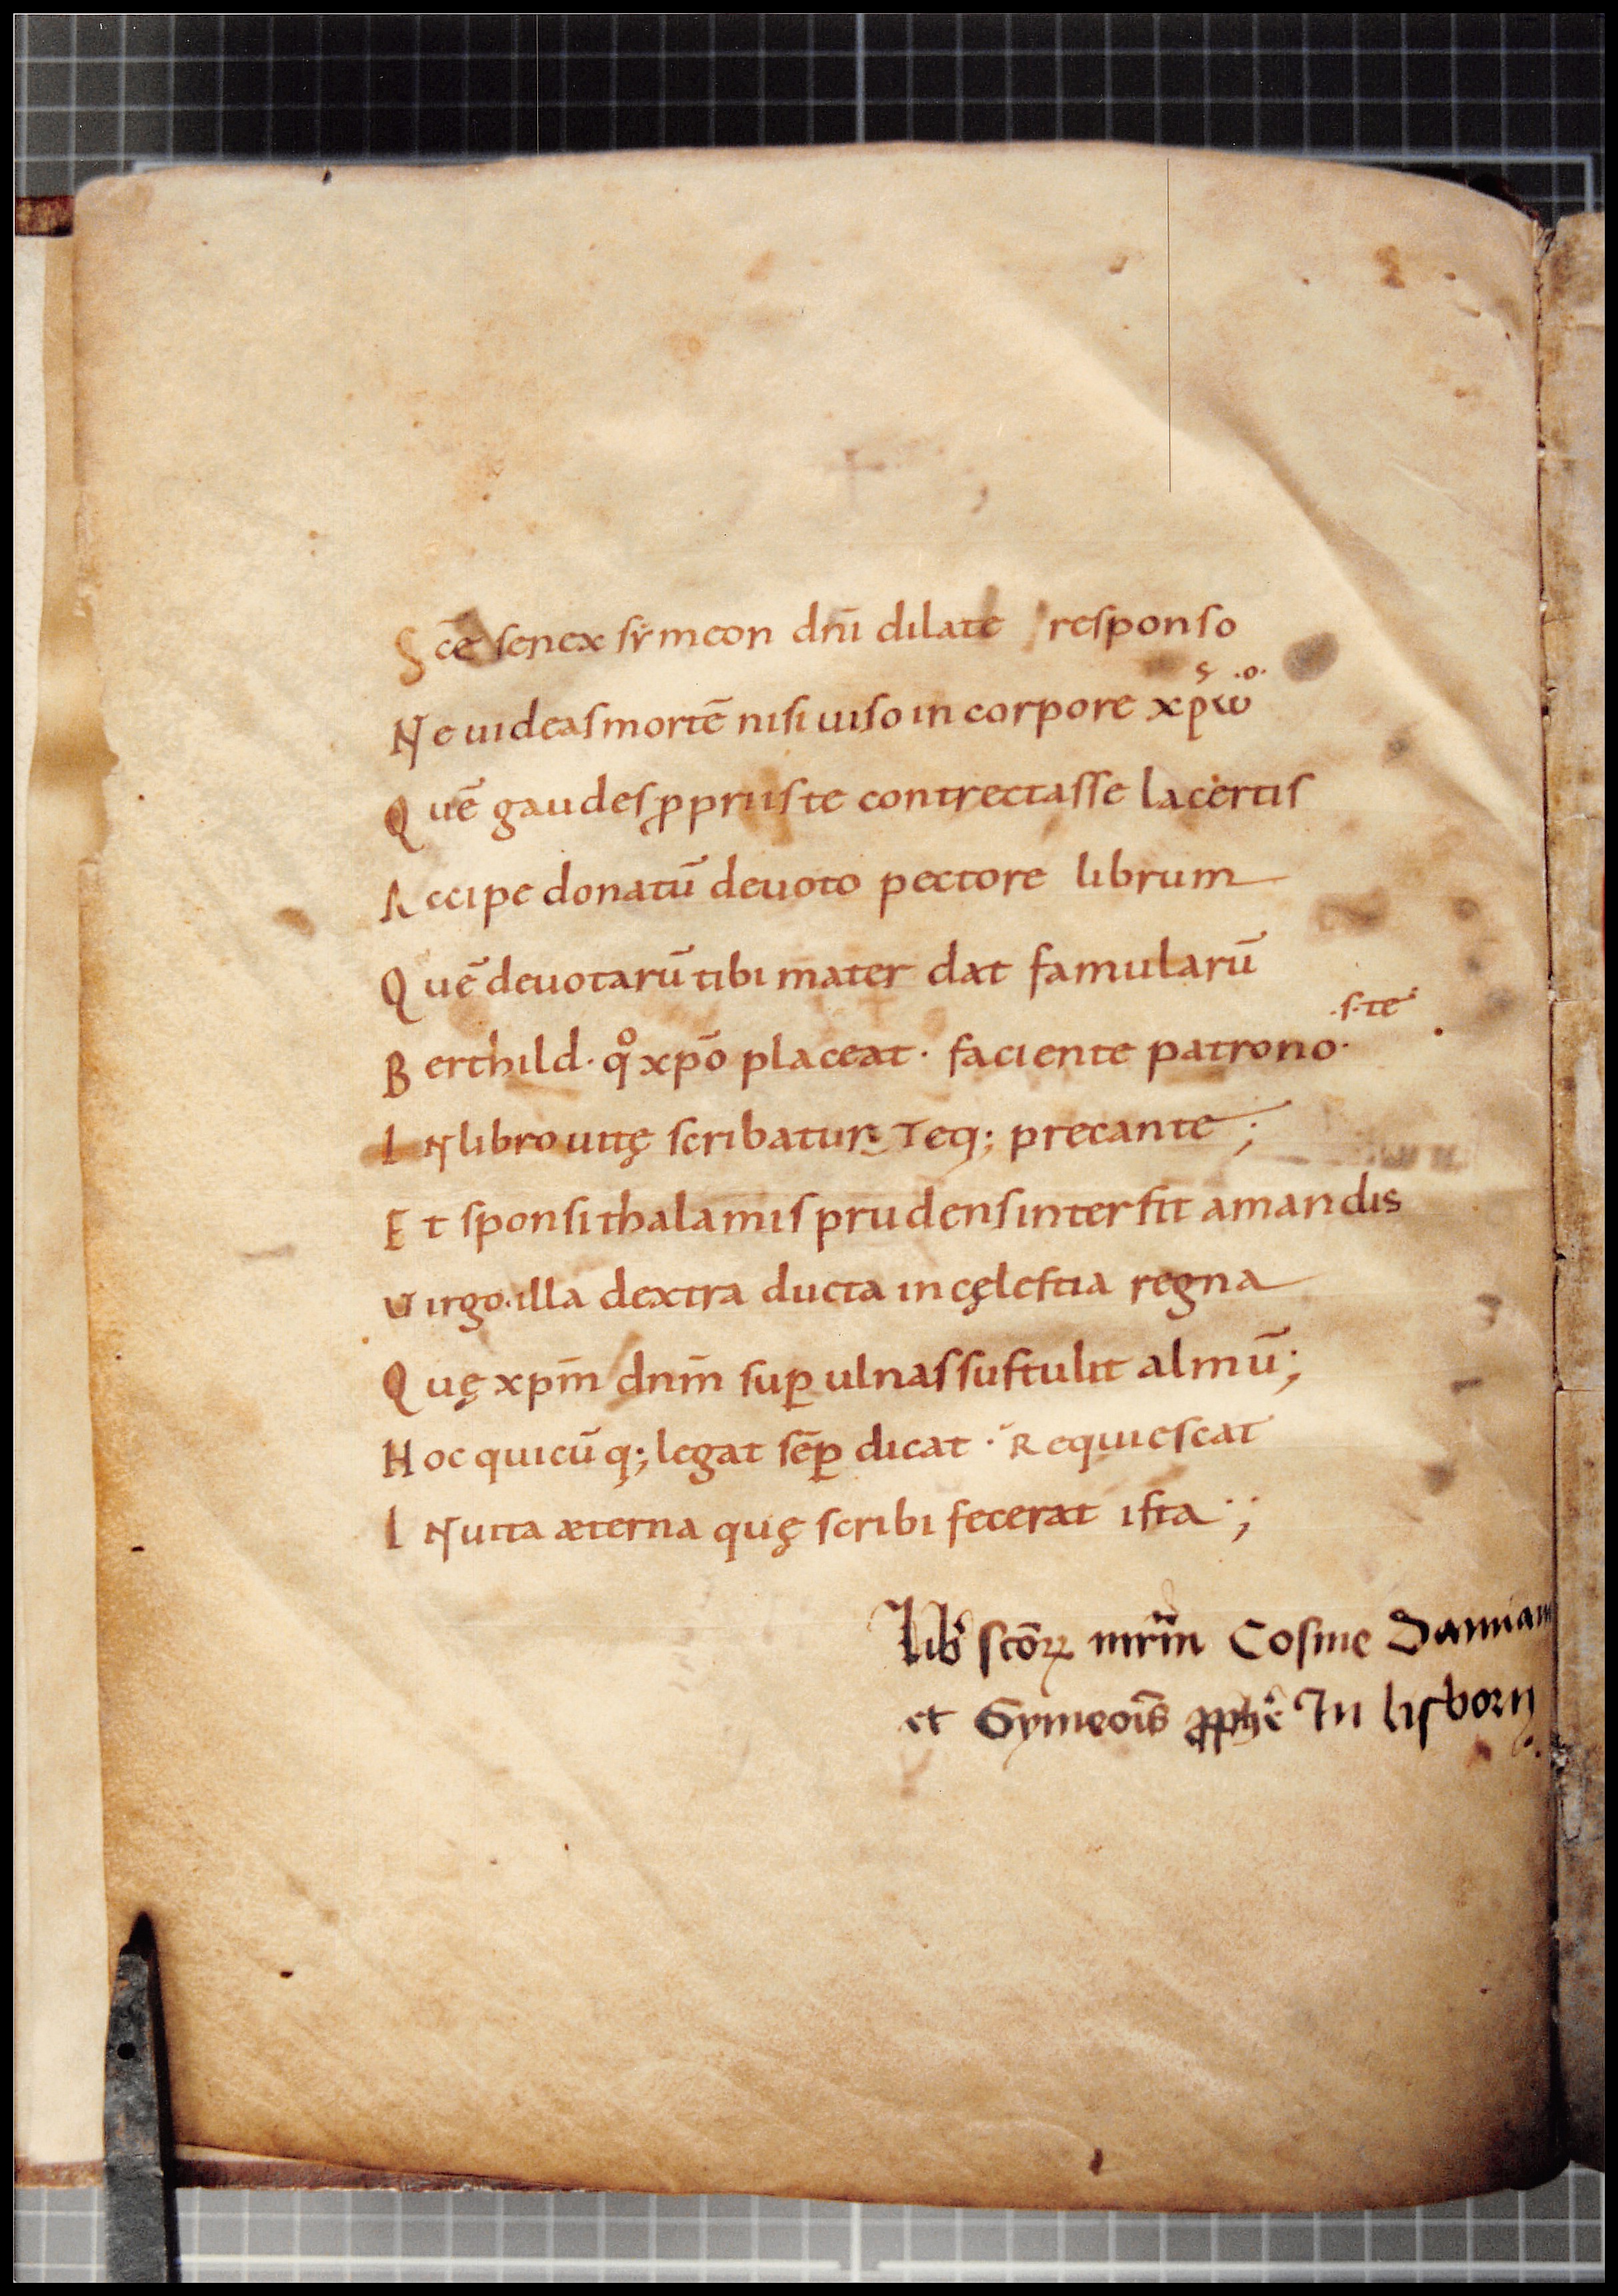 Scē senex symeon dnī dilate responso
s .o.
Ne uideas mortē nisi uiso in corpore xp̄ω
Quē gaudes ꝓpriis te contrectasse lacertis
Accipe donatū deuoto pectore librum
Quē deuotarū tibi mater dat famularū
.s. te
Berthild· qͦ xpō placeat· faciente patrono·
IN libro uitę scribatur Teq; precante;
Et sponsi thalamis prudens intersit amandis
Virgo. illa dextra ducta in cęlestia regna
Quę xpm̄ dnm̄ suꝑ ulnas sustulit almū;
Hoc quicūq; legat sēꝑ dicat· Requiescat
IN uita æterna quę scribi fecerat ista;
Lib scōꝝ mr̄m Cosme Damiani
et Symeoīs ꝓphe In lisborn